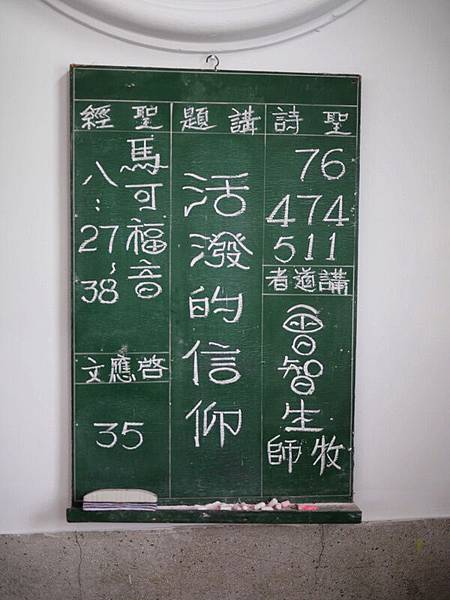 聖詩
76
474
511
講道者
曾智生
牧師
講題
活潑的信仰
聖經
馬可福音
八：27~38
啓應文
35